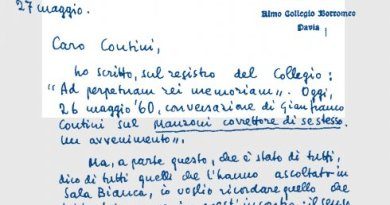 27 maggio.
Almo Collegio Borromeo
Pavia
Caro Contini,
ho scritto, sul registro del Collegio:
"Ad perpetuam rei memoriam". Oggi,
26 maggio '60, conversazione di Gianfranco
Contini sul Manzoni correttore di se stesso.
Un avvenimento".
Ma, a parte questo, che è stato di tutti,
dico di tutti quelli che l'hanno ascoltato in
Sala Bianca, io voglio ricordare quello che
incontro: il senso